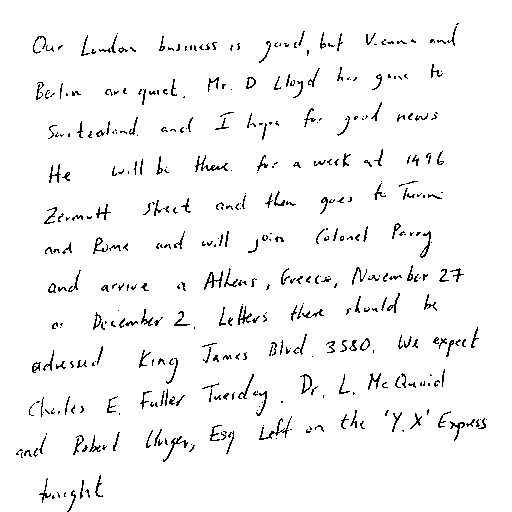 Our London business is good, but Vienna and
Berlin are quiet. Mr. D Lloyd has gone to
Switzerland and I hope for good news
He will be there for a week at 1496
Zermott Street and then goes to Turin
and Rome and will join Colonel Parry
and arrive a Athens, Greece, November 27
or December 2. Letters there should be
adressed King James Blvd. 3580. We expect
Charles E. Fuller Tuesday. Dr. L. McQuaid
and Robert Unger, Esq Left on the 'Y.X' Express
tonight